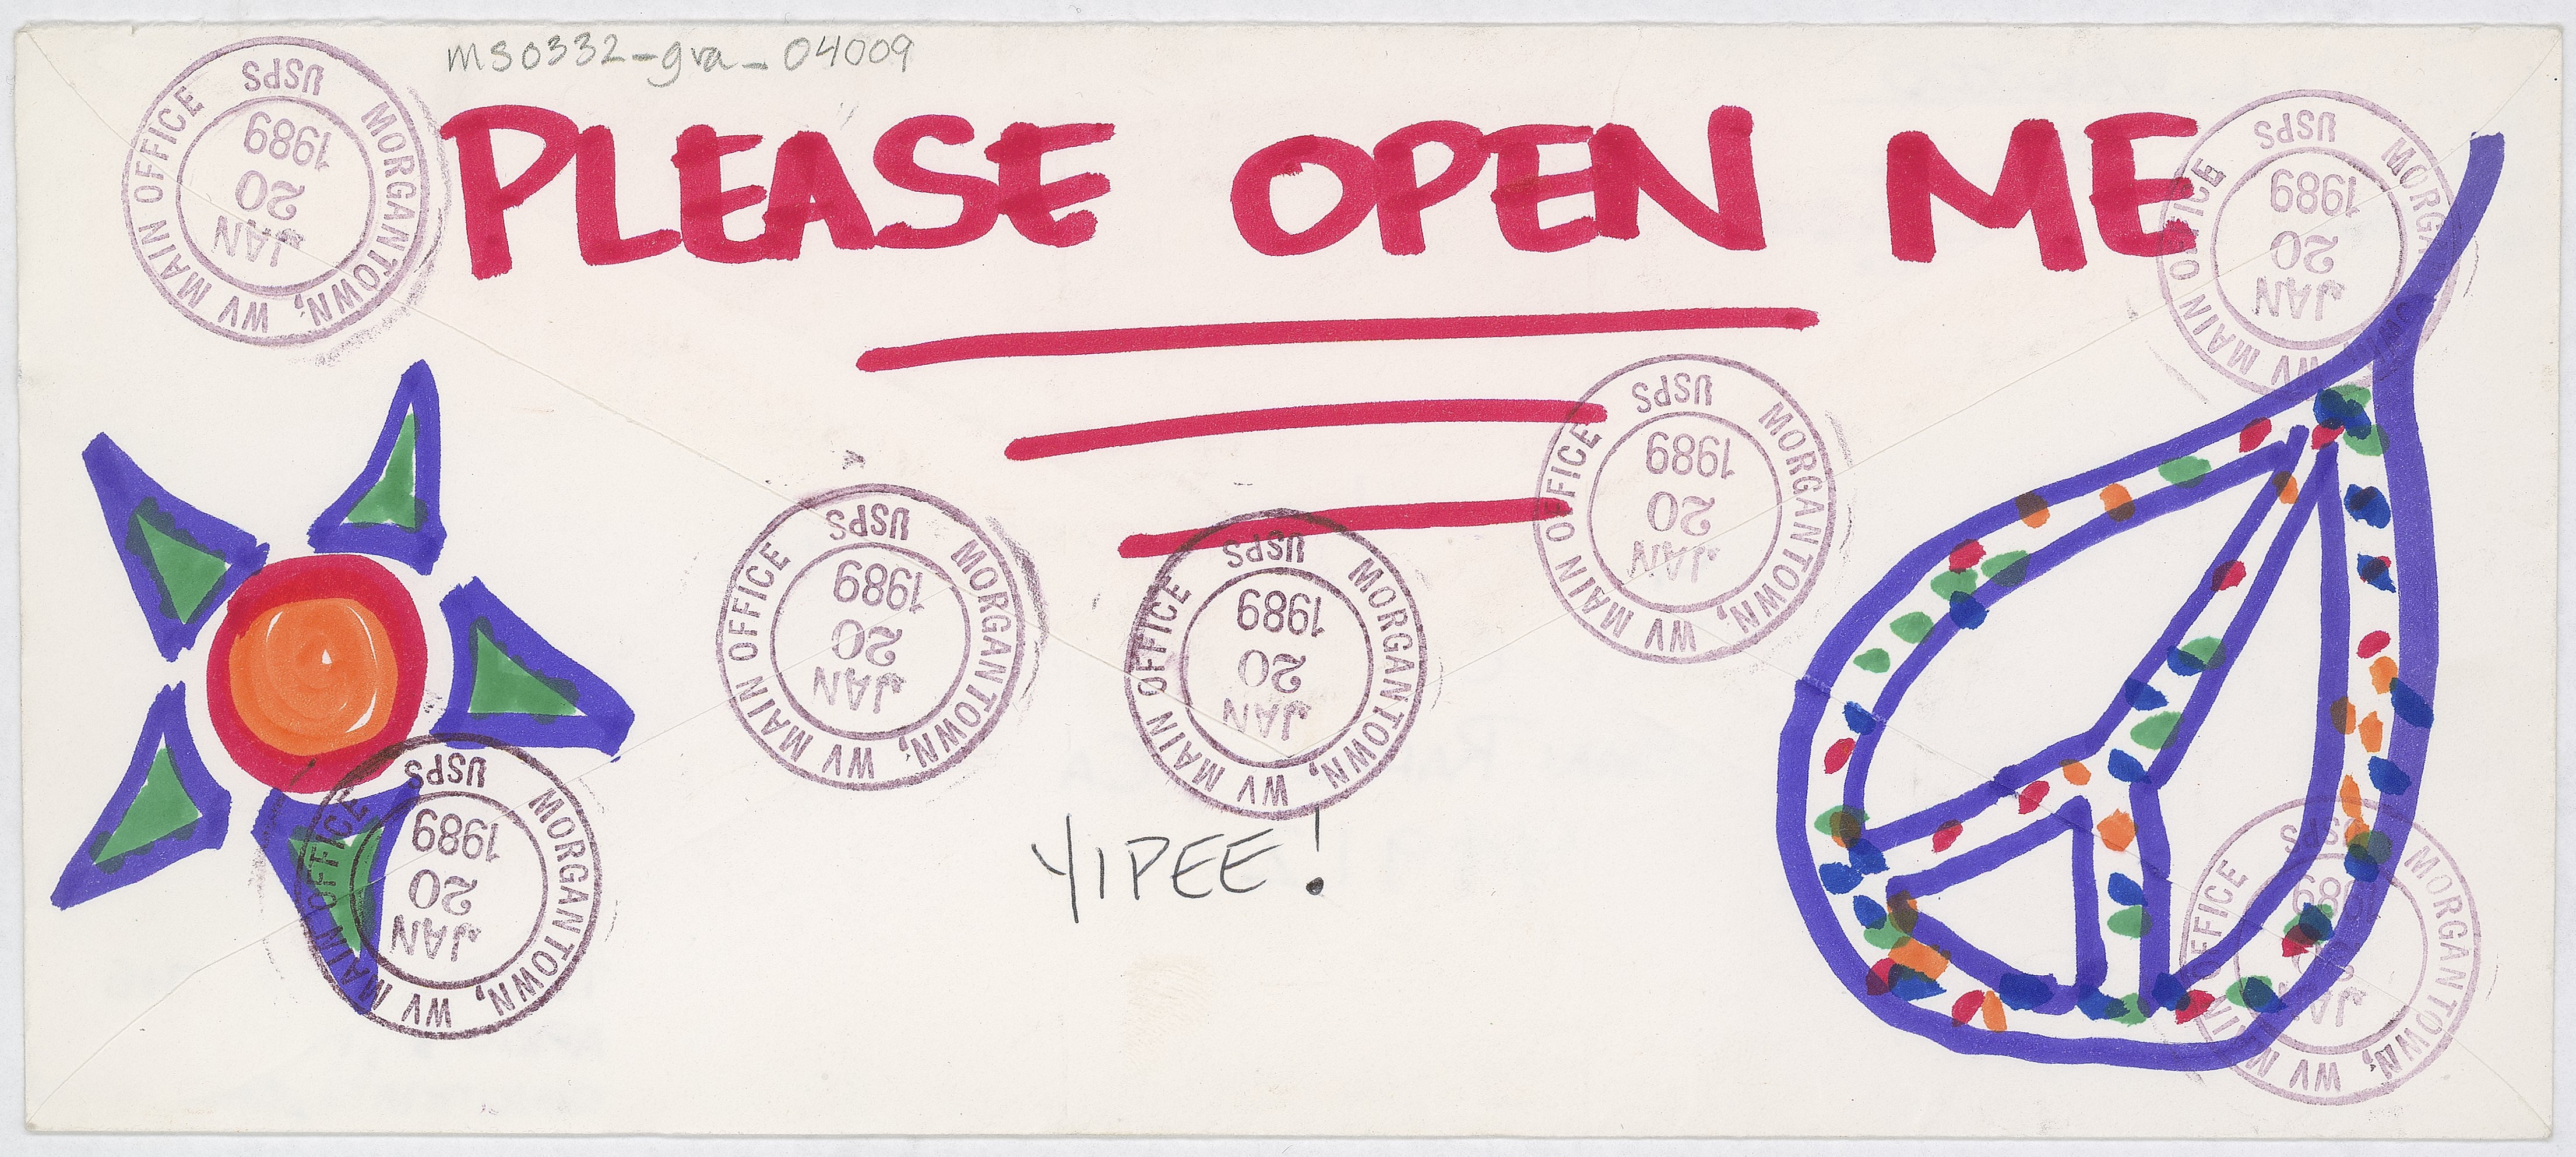 ms0332-gra_04009
PLEASE OPEN ME
YIPEE!
MORGANTOWN, WV MAIN OFFICE
USPS
JAN
20
1989
MORGANTOWN, WV MAIN OFFICE
USPS
JAN
20
1989
MORGANTOWN, WV MAIN OFFICE
USPS
JAN
20
1989
MORGANTOWN, WV MAIN OFFICE
USPS
JAN
20
1989
MORGANTOWN, WV MAIN OFFICE
USPS
JAN
20
1989
MORGANTOWN, WV MAIN OFFICE
USPS
JAN
20
1989
MORGANTOWN, WV MAIN OFFICE
USPS
JAN